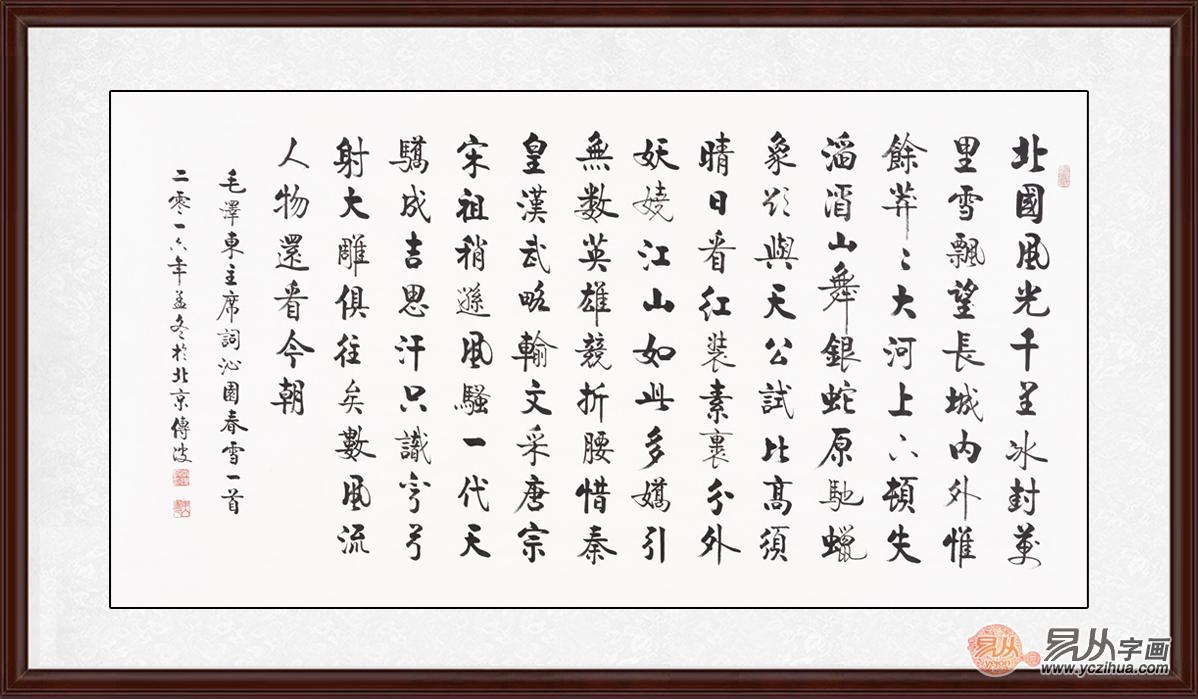 北國風光千里冰封萬
里雪飄望長城內外惟
餘莽〻大河上下頓失
滔滔山舞銀蛇原馳蠟
象欲與天公試比高須
晴日看红裝素裹分外
妖嬈江山如此多嬌引
無数英雄競折腰惜秦
皇漢武略輸文采唐宗
宋祖稍遜風騷一代天
驕成吉思汗只識弯弓
射大雕俱往矣數風流
人物還看今朝
毛澤東主席詞沁園春雪一首
二零一六年孟冬於北京傳波
易从字画
yejon
www.yczihua.com